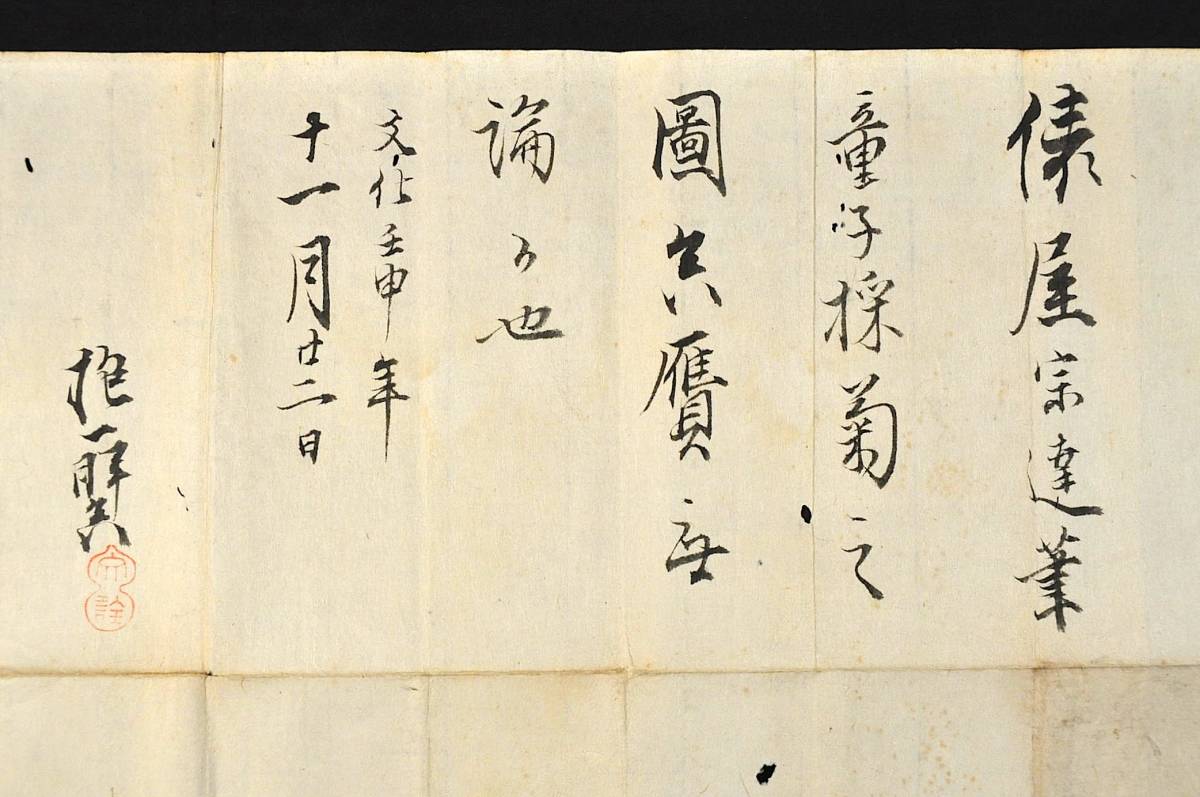 俵屋宗達筆
童子採菊之
圖真贋無
論也
文化壬申年
十一月廿二日
抱一暉真
文詮